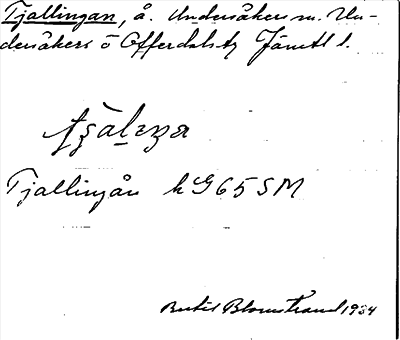 Tjallingan, å. Undersåkers sn. Un-
dersåkers o Offerdals tg Jämtl l.
Tjallingån k G65SM
Bertil Blomstrand 1934